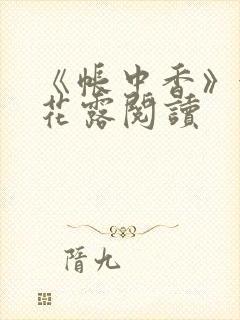 《帳中香》
花露閱讀
隋九